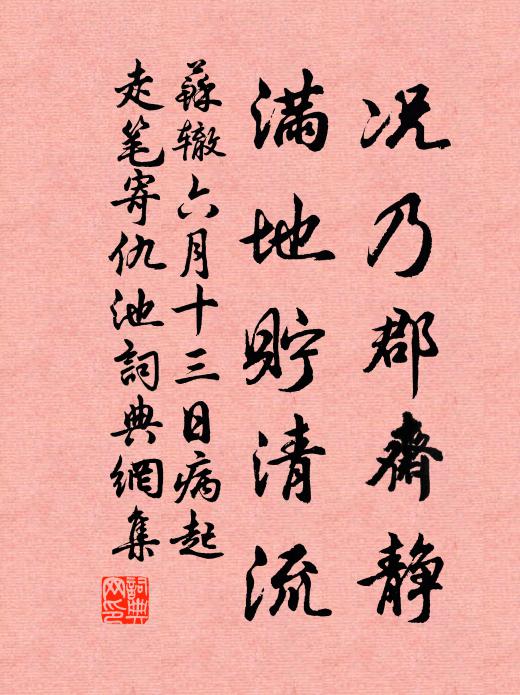 况乃郡齋静
满地貯清流
蘇辙六月十三日病起
走笔寄仇池詞典網集
詞典網印